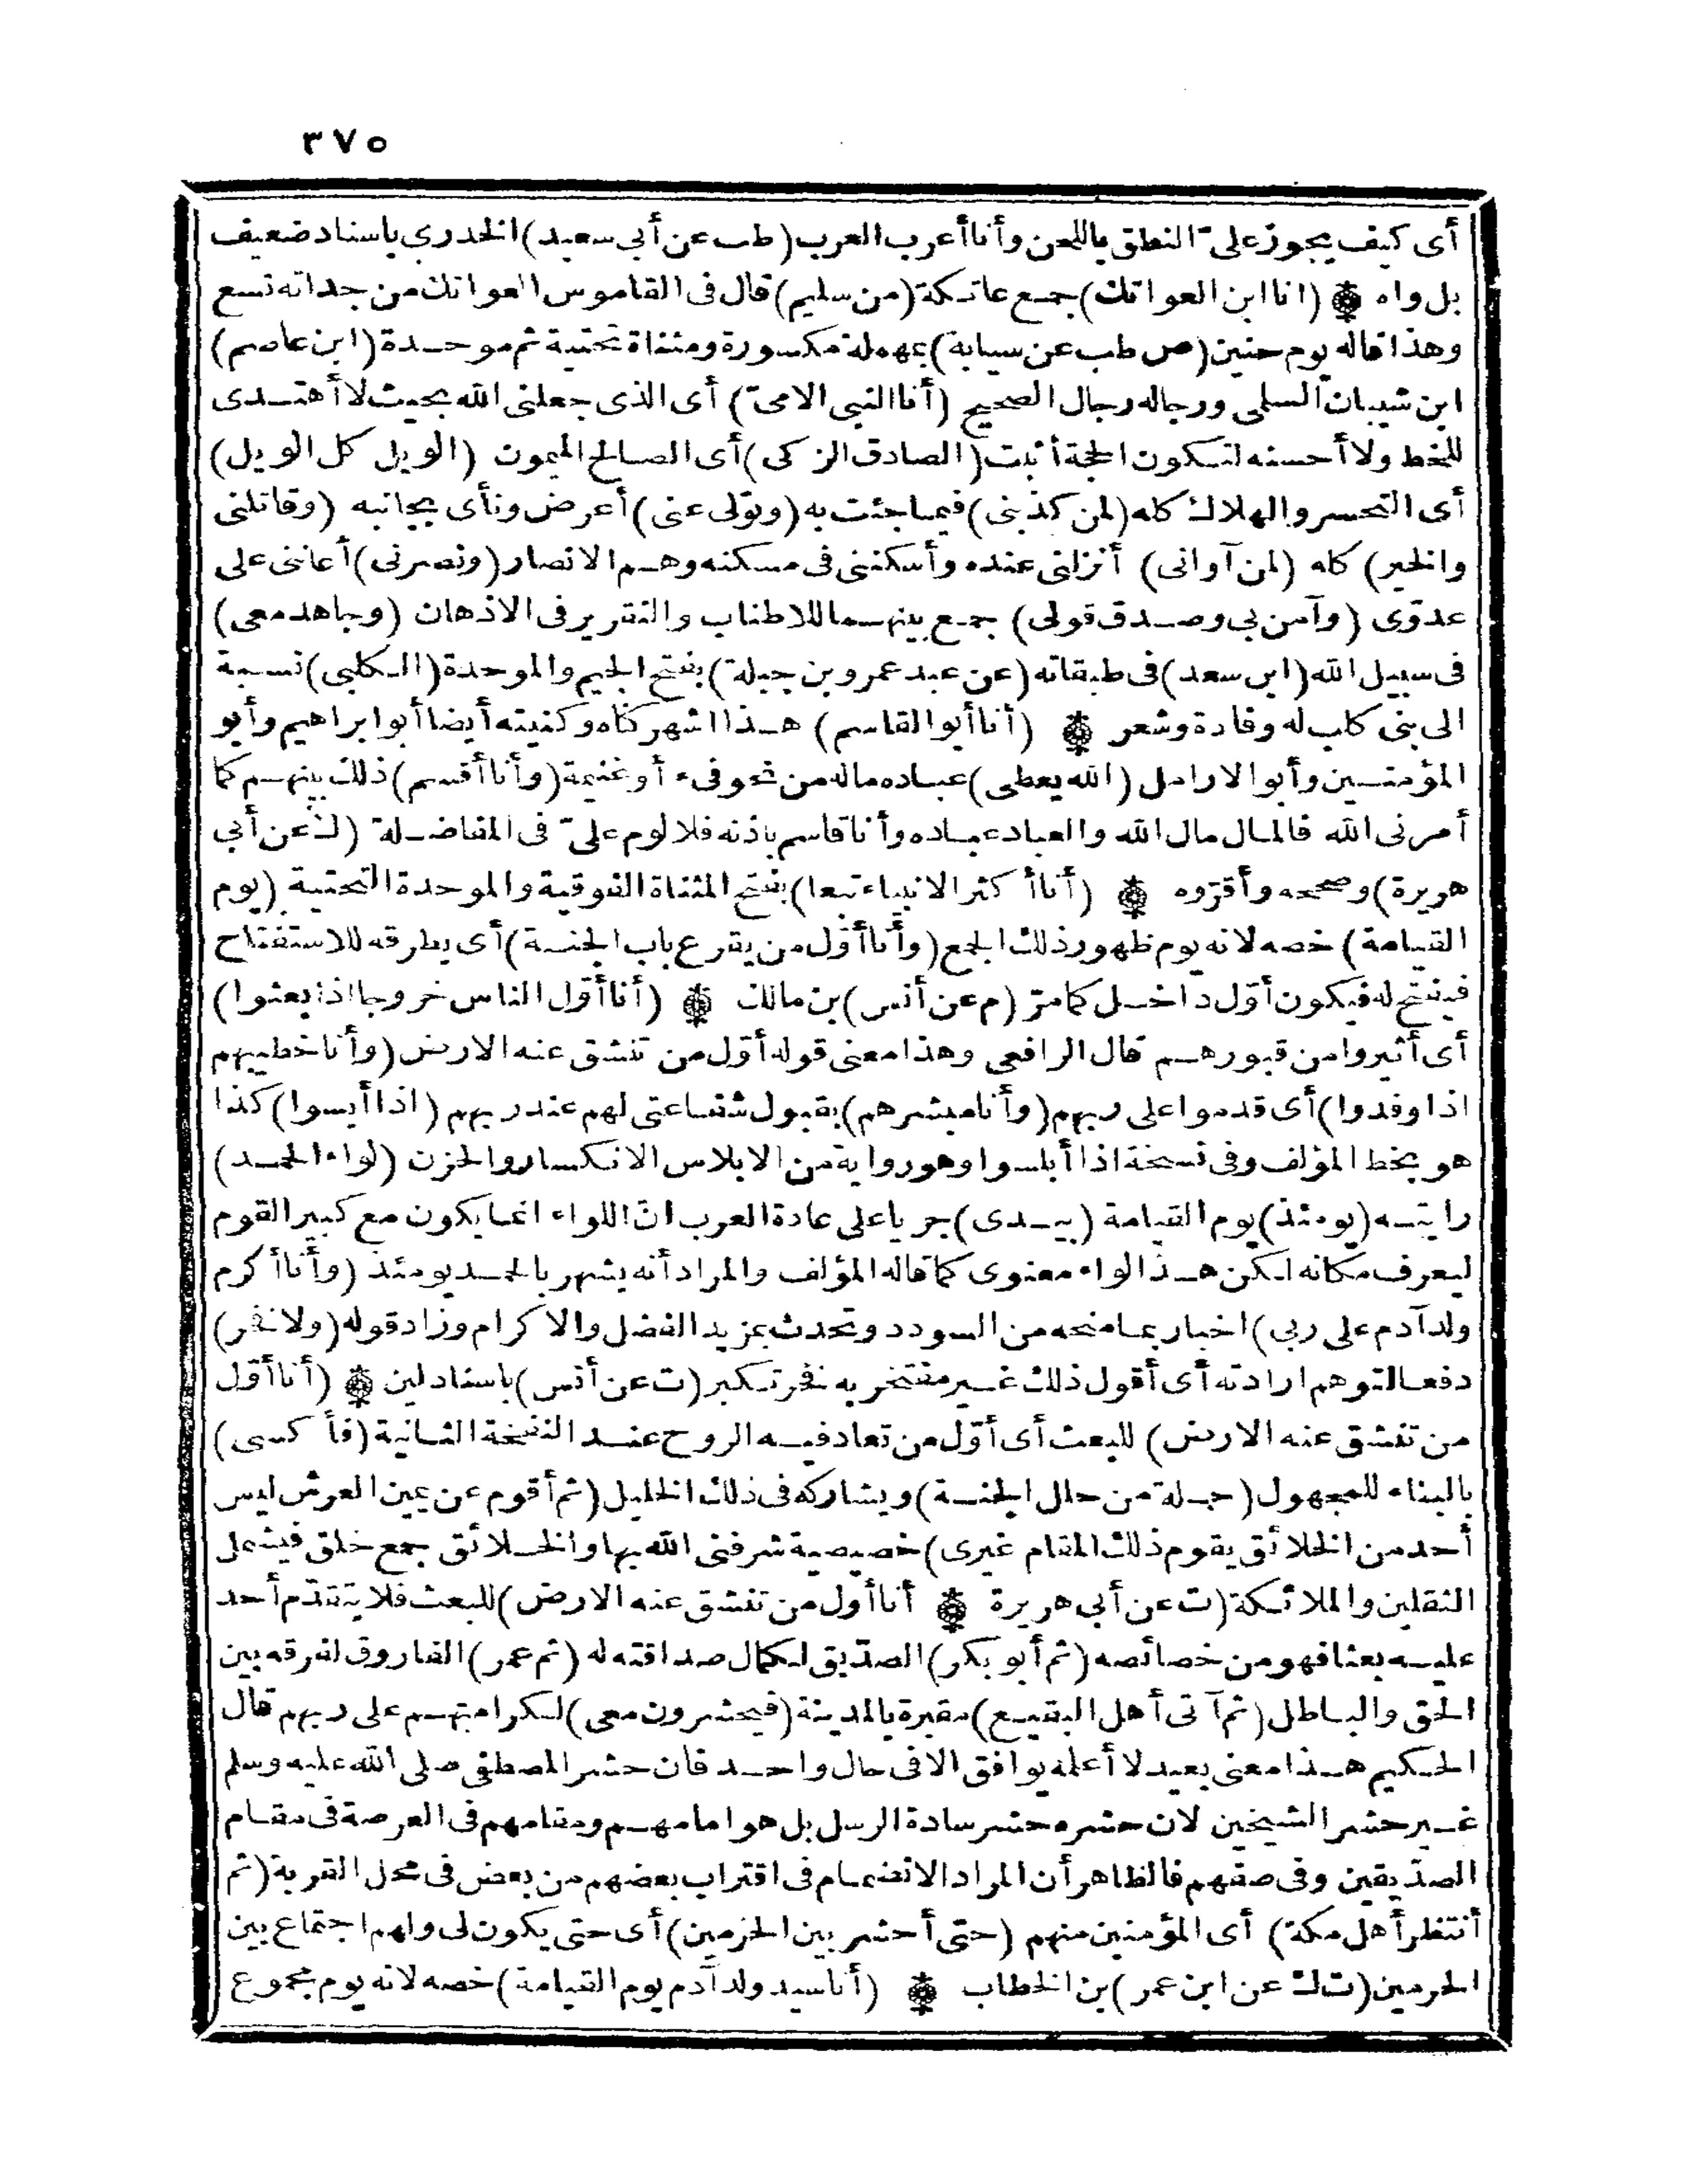 ٣٧٥
أى كيف يجوز على النطق باللحن وأنا أعرب العرب (طب عن أبى سعيد) الخدري باسناد ضعيف
بل واه (انا ابن العواتك) جمع عاتكة (من سليم) قال فى القاموس العواتك من جداته تسع
وهذا قاله يوم حنين (ص طب عن سيابة) بمهملة مكسورة ومثناة تحتية ثم موحدة (ابن عاصم)
ابن شيبان السلمى ورجاله رجال الصحيح (أنا النبى الامىّ) أى الذى جعلنى الله بحيث لا أهتدى
للخط ولا أحسنه لتكون الحجة أثبت (الصادق الزكى) أى الصالح الميمون (الويل كل الويل)
أى التحسر والهلاك كله (لمن كذبنى) فيما جئت به (وتولى عنى) أعرض ونأى بجانبه (وقاتلنى
والخير) كله (لمن آوانى) أنزلنى عنده وأسكننى فى مسكنه وهم الانصار (ونصرنى) أعاننى على
عدوّى (وآمن بى وصدق قولى) جمع بينهما للاطناب والتقرير فى الاذهان (وجاهد معى)
فى سبيل الله (ابن سعد) فى طبقاته (عن عبد عمرو بن جبلة) بفتح الجيم والموحدة (الكلبى) نسبة
الى بنى كلب له وفادة وشعر (أنا أبو القاسم) هذا اشهر كناه وكنيته أيضا أبو ابراهيم وأبو
المؤمنين وأبو الارامل (الله يعطى) عباده ماله من نحو فىء أو غنيمة (وأنا أقسم) ذلك بينهم كما
أمرنى الله فالمال مال الله والعباد عباده وأنا قاسم باذنه فلا لوم علىّ فى المفاضلة (ك عن أبى
هريرة) وصححه وأقرّوه (أنا أكثر الانبياء تبعا) بفتح المثناة الفوقية والموحدة التحتية (يوم
القيامة) خصه لانه يوم ظهور ذلك الجمع (وأنا أوّل من يقرع باب الجنة) أى يطرقه للاستفتاح
فيفتح له فيكون أوّل داخل كما مرّ (م عن أنس) بن مالك (أنا أوّل الناس خروجا اذا بعثوا)
أى أثيروا من قبورهم قال الرافعى وهذا معنى قوله أوّل من تنشق عنه الارض (وأنا خطيبهم
اذا وفدوا) أى قدموا على ربهم (وأنا مبشرهم) بقبول شفاعتى لهم عند ربهم (اذا أيسوا) كذا
هو بخط المؤلف وفى نسخة اذا أبلسوا وهو رواية من الابلاس الانكسار والحزن (لواء الحمد)
رايته (يومئذ) يوم القيامة (بيدى) جريا على عادة العرب انّ اللواء انما يكون مع كبير القوم
ليعرف مكانه لكن هذا لواء معنوى كما قاله المؤلف والمراد أنه يشهر بالحمد يومئذ (وأنا أكرم
ولد آدم على ربى) اخبار بما منحه من السودد وتحدث بمزيد الفضل والاكرام وزاد قوله (ولا فخر)
دفعا لتوهم ارادته أى أقول ذلك غير مفتخر به فخر تكبر (ت عن أنس) باسناد لين (أنا أوّل
من تنشق عنه الارض) للبعث أى أوّل من تعاد فيه الروح عند النفخة الثانية (فأكسى)
بالبناء للمجهول (حلة من حلل الجنة) ويشاركه فى ذلك الخليل (ثم أقوم عن يمين العرش ليس
أحد من الخلائق يقوم ذلك المقام غيرى) خصيصية شرفنى الله بها والخلائق جمع خلق فيشمل
الثقلين والملائكة (ت عن أبى هريرة أنا أول من تنشق عنه الارض) للبعث فلا يتقدّم أحد
عليه بعثا فهو من خصائصه (ثم أبو بكر) الصدّيق لكمال صداقته له (ثم عمر) الفاروق لفرقه بين
الحق والباطل (ثم آتى أهل البقيع) مقبرة بالمدينة (فيحشرون معى) لكرامتهم على ربهم قال
الحكيم هذا معنى بعيد لا أعلمه يوافق الا فى حال واحد فان حشر المصطفى صلى الله عليه وسلم
غير حشر الشيخين لان حشره حشر سادة الرسل بل هو امامهم ومقامهم فى العرصة فى مقام
الصدّيقين وفى صفهم فالظاهر أن المراد الانضمام فى اقتراب بعضهم من بعض فى محل القربة (ثم
أنتظر أهل مكة) أى المؤمنين منهم (حتى أحشر بين الحرمين) أى حتى يكون لى ولهم اجتماع بين
الحرمين (ت ك عن ابن عمر) بن الخطاب (أنا سيد ولد آدم يوم القيامة) خصه لانه يوم مجموع